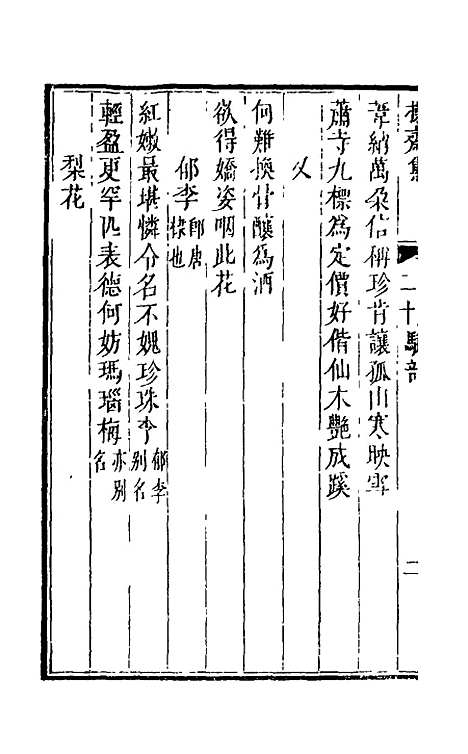 二十 騷部 二
葦納萬朶估稱珍肯讓孤山寒映雪
蕭寺九標爲定價好偕仙木艷成蹊
又
何難換甘釀爲酒
欲得嬌姿咽此花
郁李 卽唐棣也
紅嫩最堪憐令名不媿珍珠李 郁李别名
輕盈更罕匹表德何妨瑪瑙梅 亦别名
梨花